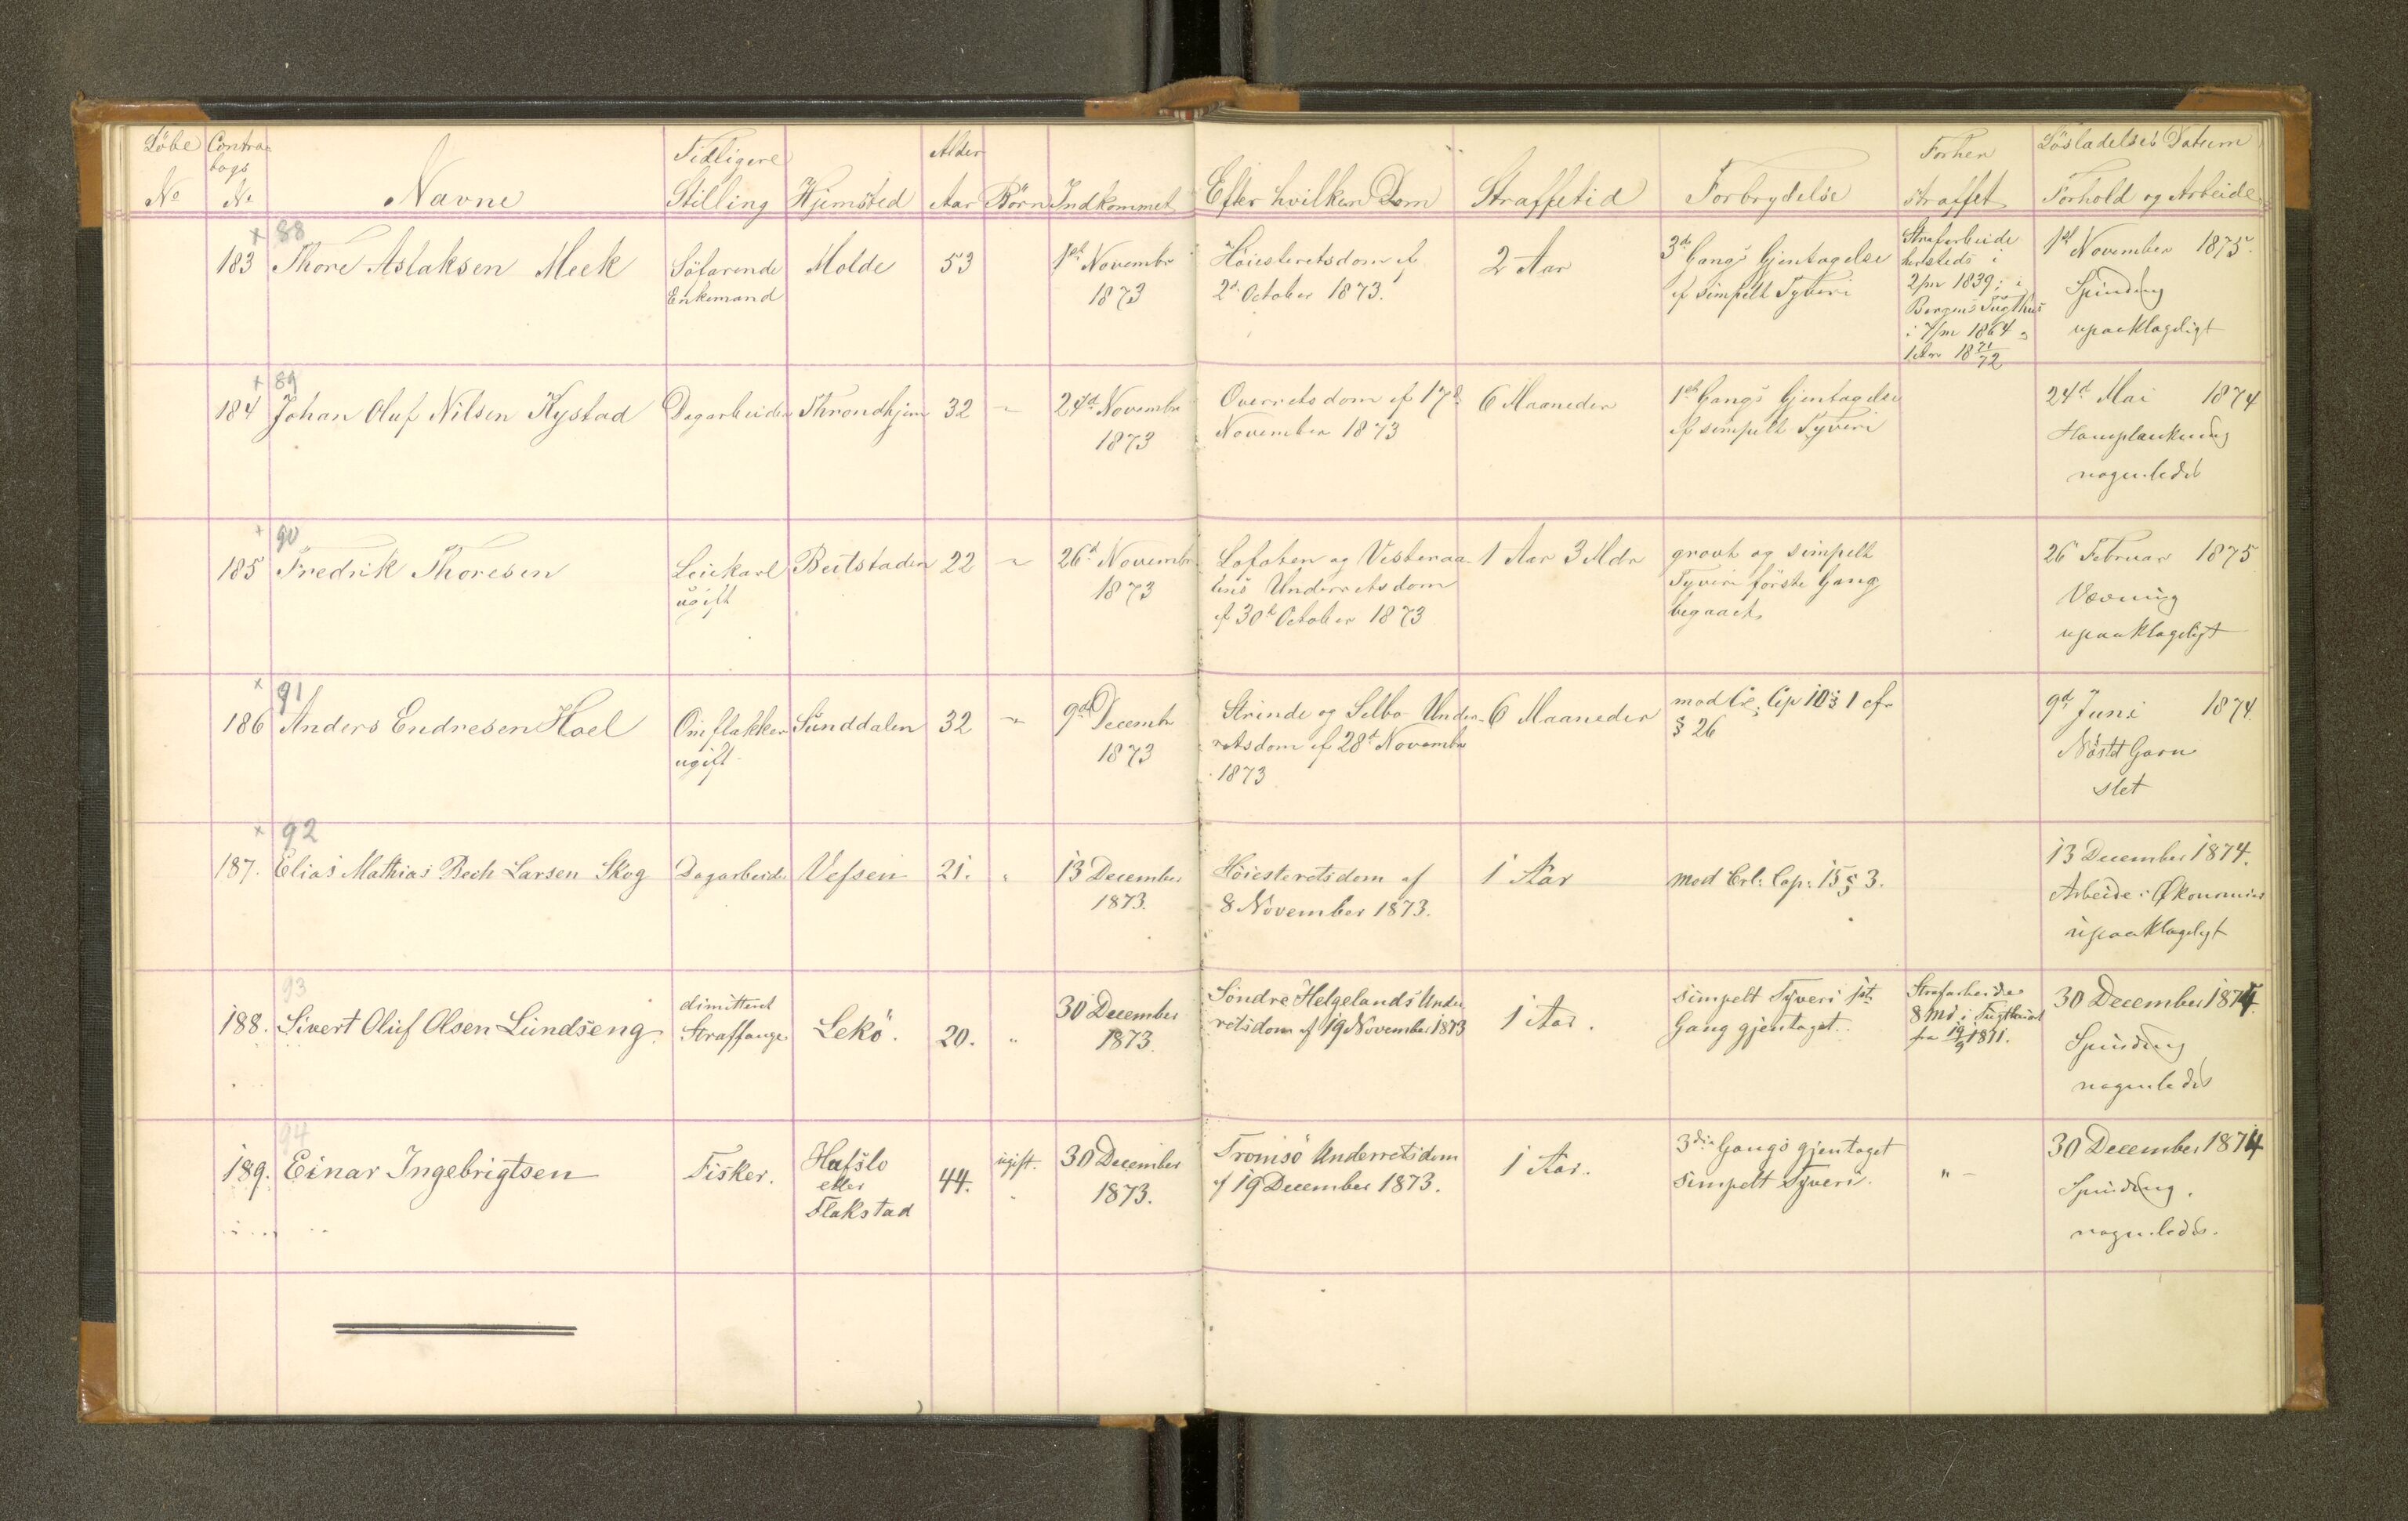 Löbe Contra- Tidligere Alder Forhen Lösladelses Datum
bogs
No No Navne Stilling Hjemsted Aar Börn Indkommet Efter hvilken Dom Straffetid Forbrydelse straffet Forhold og Arbeide
88
183 Thore Aslaksen Meek Söfarende Molde 53 1st Novembr Höiesteretsdom af 2 Aar 3de Gangs Gjentagelse Strafarbeide 1st November 1875.
Enkemand 1873 2d October 1873. af simpelt Tyveri hersteds i Spinding
2/m 1839; i upaaklageligt
Bergens Tugthus
i 7/m 1864 og
1 Aar 18 71/72
89
184 Johan Oluf Nilsen Kystad Dagarbeider Throndhjem 32 " 24d Novembr Overretsdom af 17d 6 Maaneder 1st Gangs Gjentagelse 24d Mai 1874
1873 November 1873 af simpelt Tyveri Hampplukning
nogenledes
90
185 Fredrik Thoresen Leiekarl Beitstaden 22 " 26d Novembr Lofoten og Vesteraa- 1 Aar 3 Mdr grovt og simpelt 26 Februar 1875
ugift 1873 lens Underretsdom Tyveri förste Gang Vævning
af 30d October 1873 begaaet upaaklageligt
91
186 Anders Endresen Hoel Omflakker Sunddalen 32 " 9d Decembr Strinde og Selbo Under- 6 Maaneder mod Cr. Cap 10 § 1 cfr 9d Juni 1874
ugift 1873 retsdom af 28d Novembr § 26 Nöstet Garn
1873 slet
92
187. Elias Mathias Bech Larsen Skog Dagarbeider Vefsen 21. " 13 December Höiesteretsdom af 1 Aar mod Crl: Cap: 15 § 3. 13 December 1874.
1873. 8 November 1873. Arbeide i Økonomien
upaaklageligt
93
188. Sivert Oluf Olsen Lundseng dimittent Lekö. 20. " 30 December Söndre Helgelands Under 1 Aar. simpelt Tyveri 1ste Strafarbeide 30 December 1874.
Straffange 1873. retsdom af 19 November 1873 Gang gjentaget. 8 Md i Tugthuset Spinding
fra 19/9 1871. nogenledes
94
189. Einar Ingebrigtsen Fisker. Hafslo 44. ugift. 30 December Tromsö Underretsdom 1 Aar. 3die Gangs gjentaget " 30 December 1874
eller " 1873. af 19 December 1873. simpelt Tyveri. Spinding.
Flakstad nogenledes.